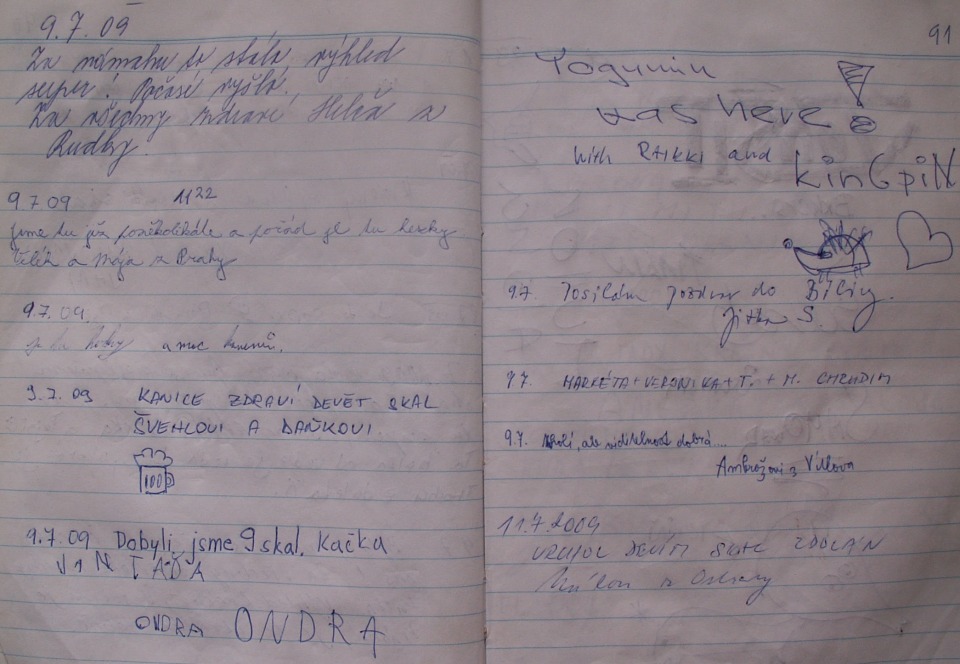 9.7.09
Za námahu to stálo, výhled
super! Počasí vyšlo.
Za všechny zdraví Helča a
Rudby.
9 7 09 11 22
jsme tu již poněkolikáté a pořád je tu hezky
a Mája z Prahy
9.7.09.
je tu a moc kamenů.
9.7.09 KANICE ZDRAVÍ DEVĚT SKAL
ŠVEHLOVI A DAŇKOVI
100
9.7.09 Dobyli jsme 9 skal, Kačka
JAN TÁĎA
ONDRA ONDRA
91
Yogumin
was here!
With RAIKKI and KinGpiN
9.7. Posílám pozdrav do Bíliny.
Jitka S.
9.7. MARKÉTA + VERONIKA + T. + M. CHRUDIM
9.7. ale viditelnost dobrá....
Ambrožovi z
11.7.2009
DEVÍTI SKAL ZDOLÁN
z Ostravy